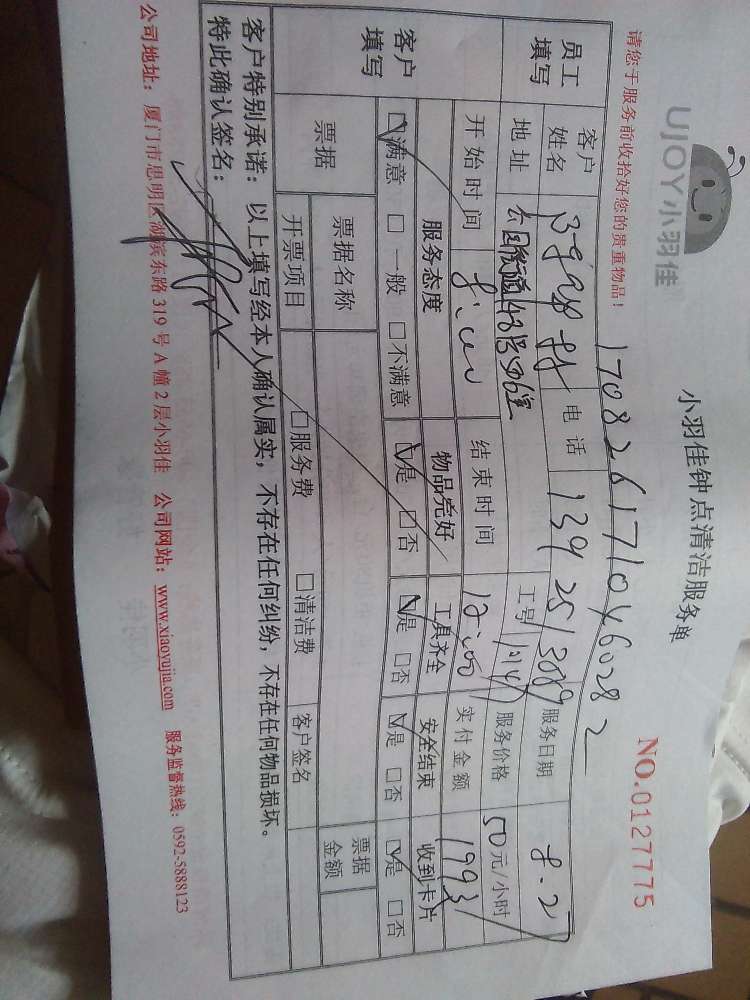 UJOY小羽佳
小羽佳钟点清洁服务单
NO.0127775
请您于服务前收拾好您的贵重物品！
员工填写 客户姓名 电话 服务日期
地址 工号 服务价格 50元/小时
开始时间 结束时间 12:00 实付金额
客户填写 服务态度 物品完好 工具齐全 安全结束 收到卡片
□满意 □一般 □不满意 □是 □否 □是 □否 □是 □否 □是 □否
票据 票据名称 票据金额
开票项目 □服务费 □清洁费 客户签名
客户特别承诺：以上填写经本人确认属实，不存在任何纠纷，不存在任何物品损坏。
特此确认签名：
公司地址：厦门市思明区湖滨东路 319 号 A 幢 2 层小羽佳 公司网站：www.xiaoyujia.com 服务监督热线：0592-5888123